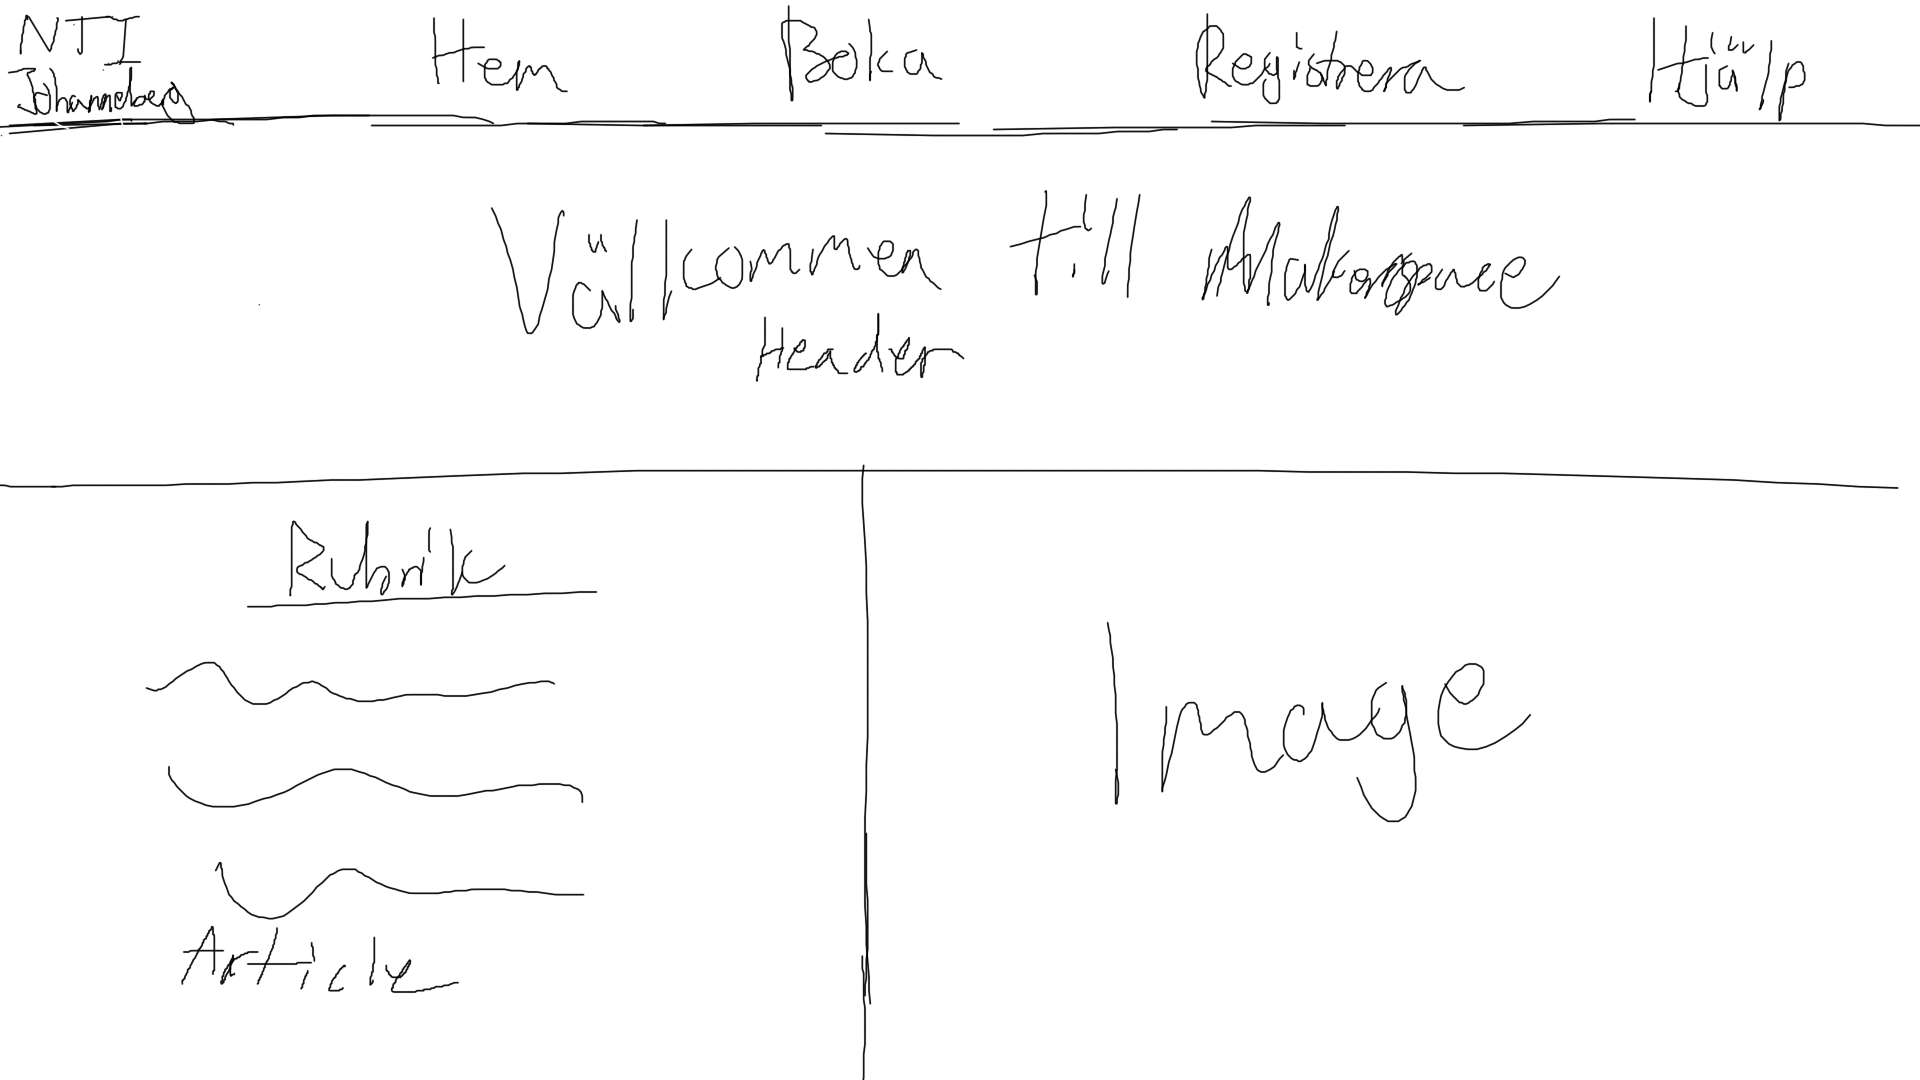 NTI
Johanneberg
Hem
Boka
Registrera
Hjälp
Vällkommen till Makerspace
Header
Rubrik
Article
Image